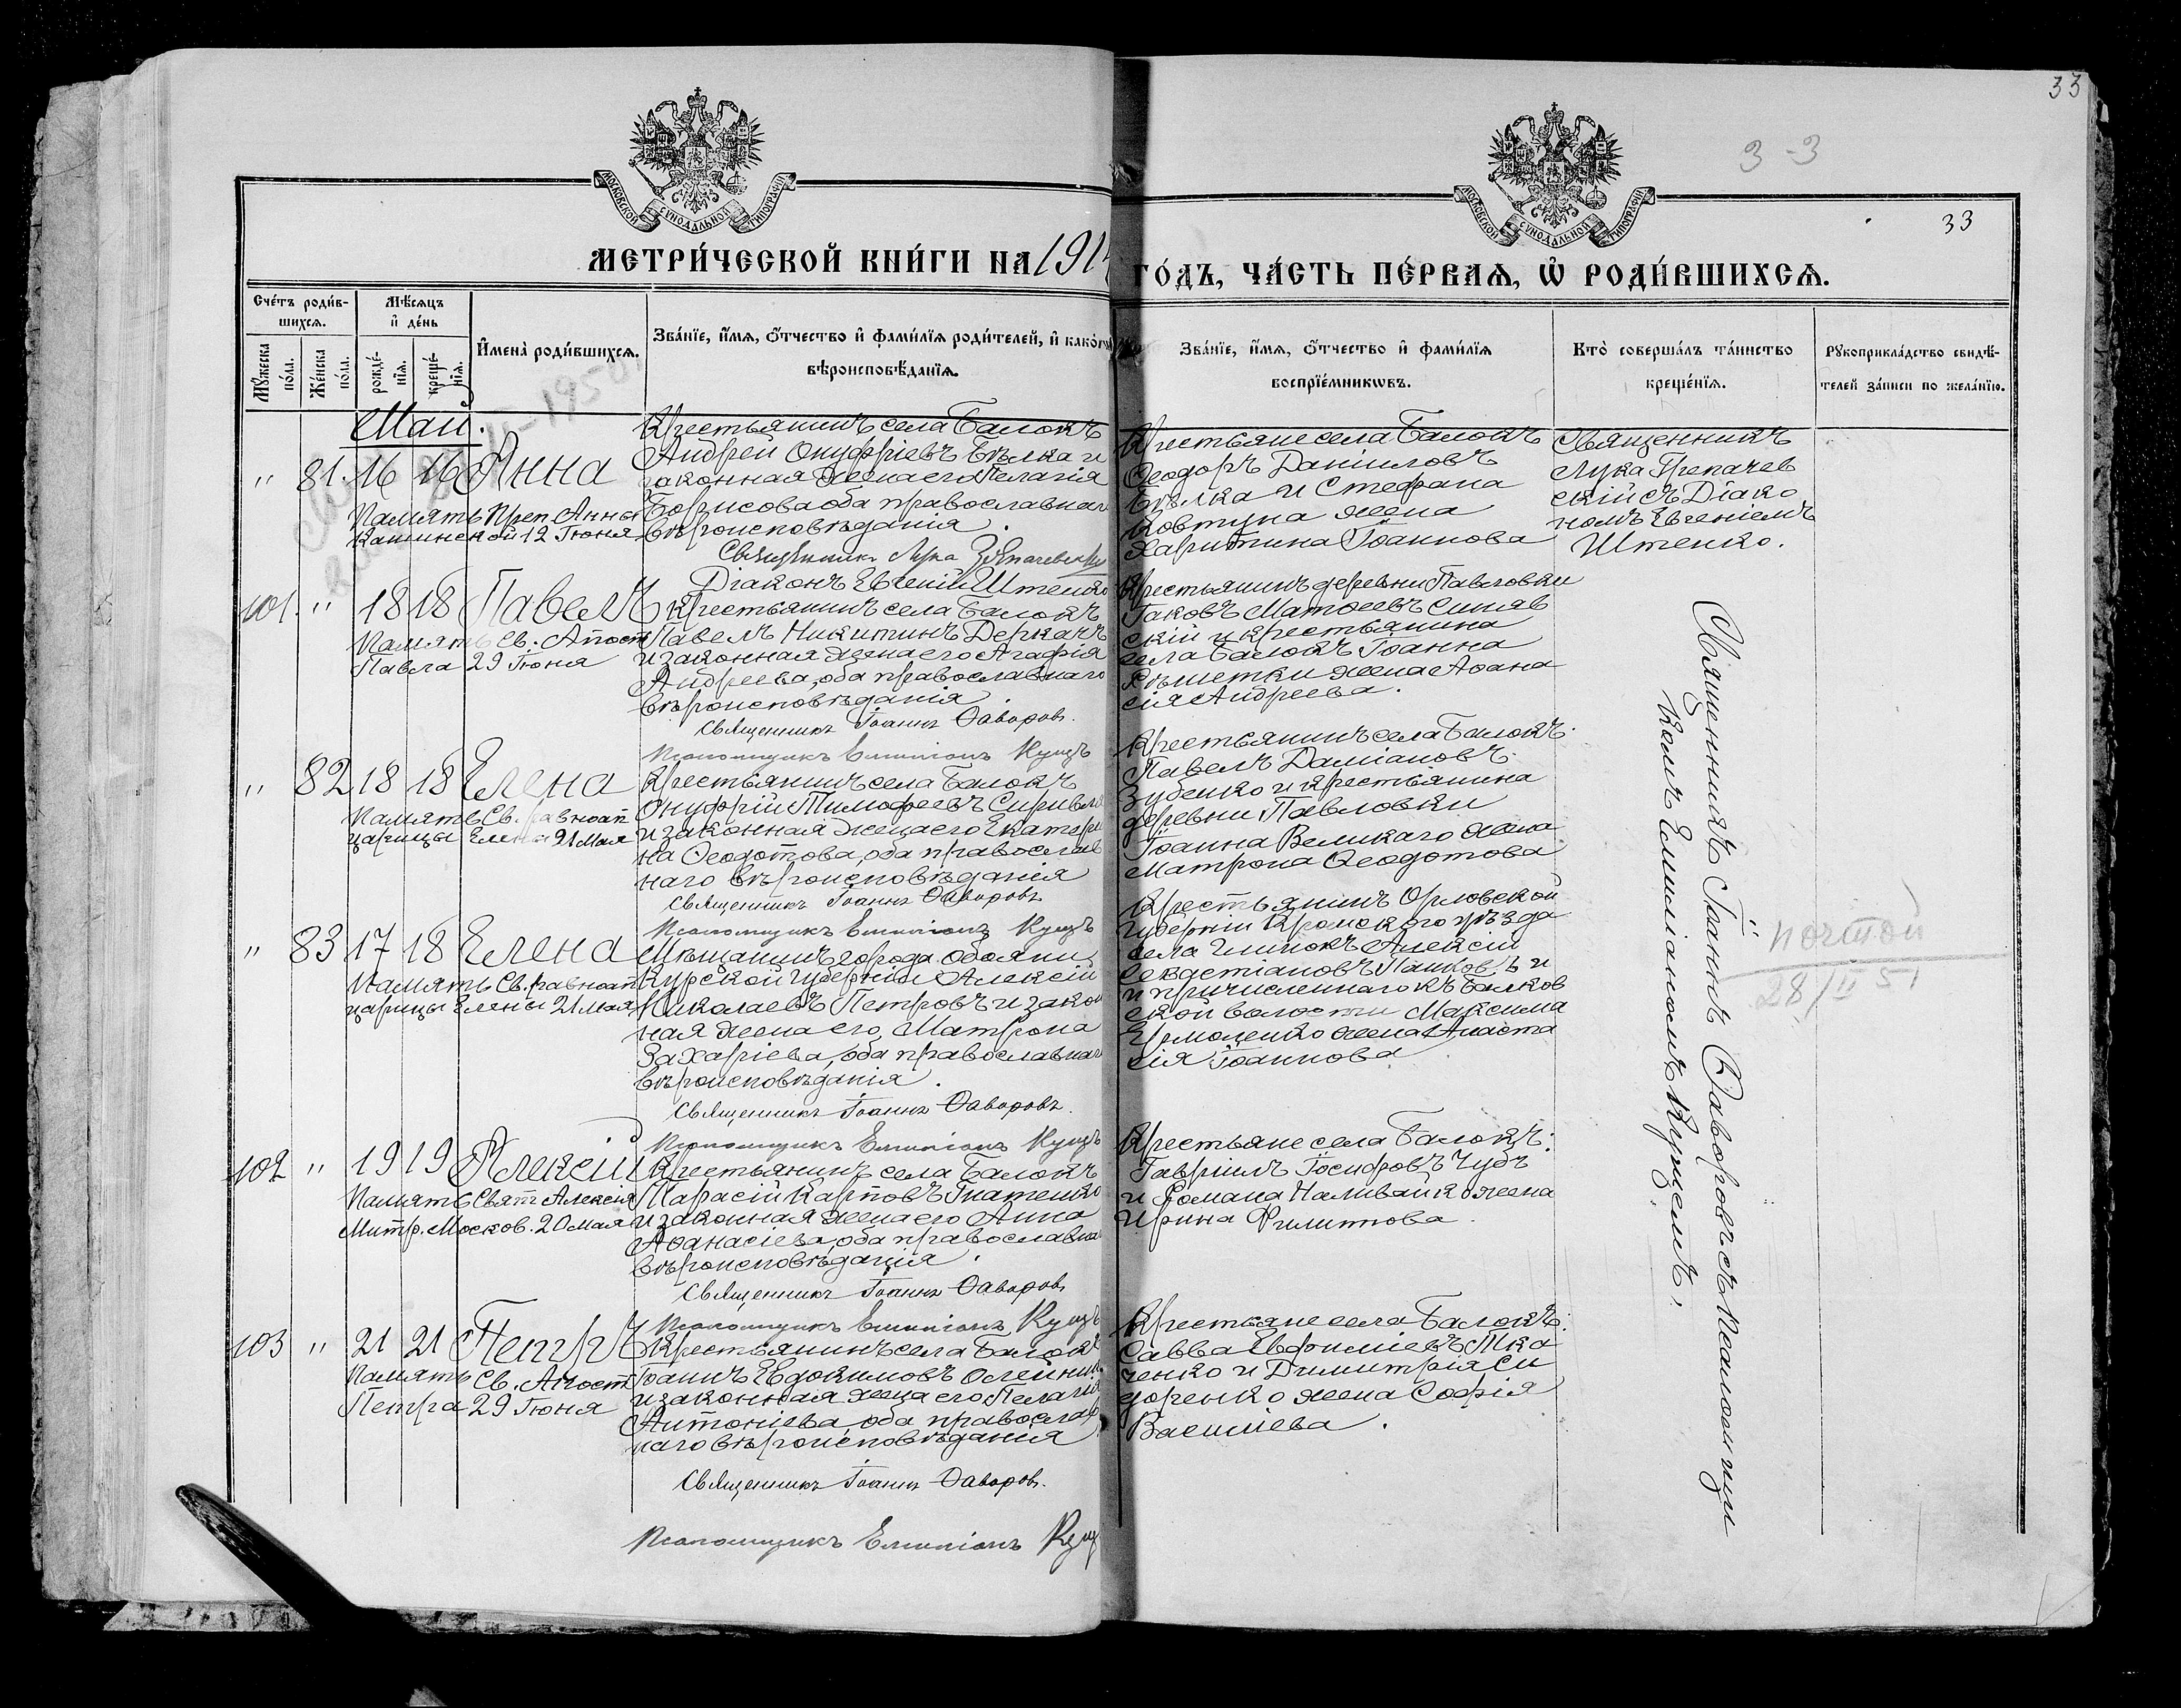 33
3-3
33
МОСКОВСКОЙ СѴНОДАЛЬНОЙ ТИПОГРАФІИ
МОСКОВСКОЙ СѴНОДАЛЬНОЙ ТИПОГРАФІИ
МЕТРИ́ЧЕСКОЙ КНИ́ГИ НА 1914
ГО́ДЪ, ЧА́СТЬ ПЕ́РВАѦ, Ѡ҆ РОДИ́ВШИХСѦ.
Сче́тъ роди́в-
шихсѧ.
Мꙋ́жеска
по́ла.
Же́нска
по́ла.
Мѣ́сѧцъ
и҆ де́нь
рожде́-
нїѧ.
креще́-
нїѧ.
И҆мена̀ роди́вшихсѧ.
Зва́нїе, и҆́мѧ, ѻ҆́тчество и҆ фами́лїѧ роди́телей, и҆ како́гѡ
вѣроисповѣ́данїѧ.
Зва́нїе, и҆́мѧ, ѻ҆́тчество и҆ фами́лїѧ
воспрїе́мникѡвъ.
Кто̀ соверша́лъ та́инство
креще́нїѧ.
Рꙋкоприкла́дство свидѣ́-
телей за́писи по жела́нїю.
Май.
" 81. 16 16 Анна
Память Преп. Анны
Кашинской 12 Іюня
Крестьянинъ села Балокъ
Андрей Онуфріевъ Бѣлка и
законная жена его Пелагія
Борисова оба православнаг
вѣроисповѣданія.
Священникъ Лука
Діаконъ Евгеній Штепко
Крестьяне села Балокъ
Ѳеодоръ Даніиловъ
Бѣлка и Стефана
Ковтуна жена
Харитина Іоаннова
Священникъ
Лука Трепачев
скій съ Діако
номъ Евгеніемъ
Штепко.
101. " 18 18 Павелъ
Память Св. Апост
Павла 29 Іюня
Крестьянинъ села Балокъ
Павелъ Никитинъ Деркачъ
и законная жена его Агафія
Андреева, оба православнаго
вѣроисповѣданія.
Священникъ Іоаннъ Ѳаворовъ.
Псаломщикъ Емиліанъ Куцъ
Крестьянинъ деревни Павловки
Іаковъ Матѳеевъ Синяв
скій и крестьянина
села Балокъ Іоанна
Рѣшетки жена Аѳана
сія Андреева.
" 82 18 18 Елена
Память Св. равноап
царицы Елены 21 Мая
Крестьянинъ села Балокъ
Онуфрій Тимофеевъ
и законная жена его Екатери
на Ѳеодотова, оба православ
наго вѣроисповѣданія
Священникъ Іоаннъ Ѳаворовъ
Псаломщикъ Емиліанъ Куцъ
Крестьянинъ села Балокъ:
Павелъ Даміановъ
Зубенко и крестьянина
деревни Павловки
Іоанна Великаго жена
Матрона Ѳеодотова.
" 83 17 18 Елена
Память Св. равноап
царицы Елены 21 Мая
Мѣщанинъ города Обояни
Курской губерніи Алексій
Николаевъ Петровъ и закон
ная жена его Матрона
Захаріева, оба православнаг
вѣроисповѣданія.
Священникъ Іоаннъ Ѳаворовъ.
Псаломщикъ Емиліанъ Куцъ
Крестьянинъ Орловской
губерніи Кромского уѣзда
села Глинокъ Алексій
Севастіановъ Пашковъ и
и причисленнаго къ Балков
ской волости Максима
Ермоленко жена Анаста
сія Іоаннова.
102 " 19 19 Алексій
Память Свят. Алексія
Митр. Москов. 20 Мая
Крестьянинъ села Балокъ
Тарасій Карповъ Гнатенко
и законная жена его Анна
Аѳанасіева, оба православна
вѣроисповѣданія.
Священникъ Іоаннъ Ѳаворовъ
Псаломщикъ Емиліанъ Куцъ
Крестьяне села Балокъ:
Гавріилъ Іосифовъ Чубъ
и Романа Наливайко жена
Ирина Филиппова.
103 " 21 21 Петръ
Память Св. Апост
Петра 29 Іюня
Крестьянинъ села Балокъ
Іоаннъ Евдокимовъ Олейник
и законная жена его Пелагія
Антоніева, оба православ
наго вѣроисповѣданія
Священникъ Іоаннъ Ѳаворовъ.
Псаломщикъ Емиліанъ Куц
Крестьяне села Балокъ:
Савва Евфиміевъ Тка
ченко и Димитрія Си
доренко жена Софія
Василіева.
Священникъ Іоаннъ Ѳаворовъ съ Псаломщи
комъ Емиліаномъ Куцемъ.
почтой
28/II 51